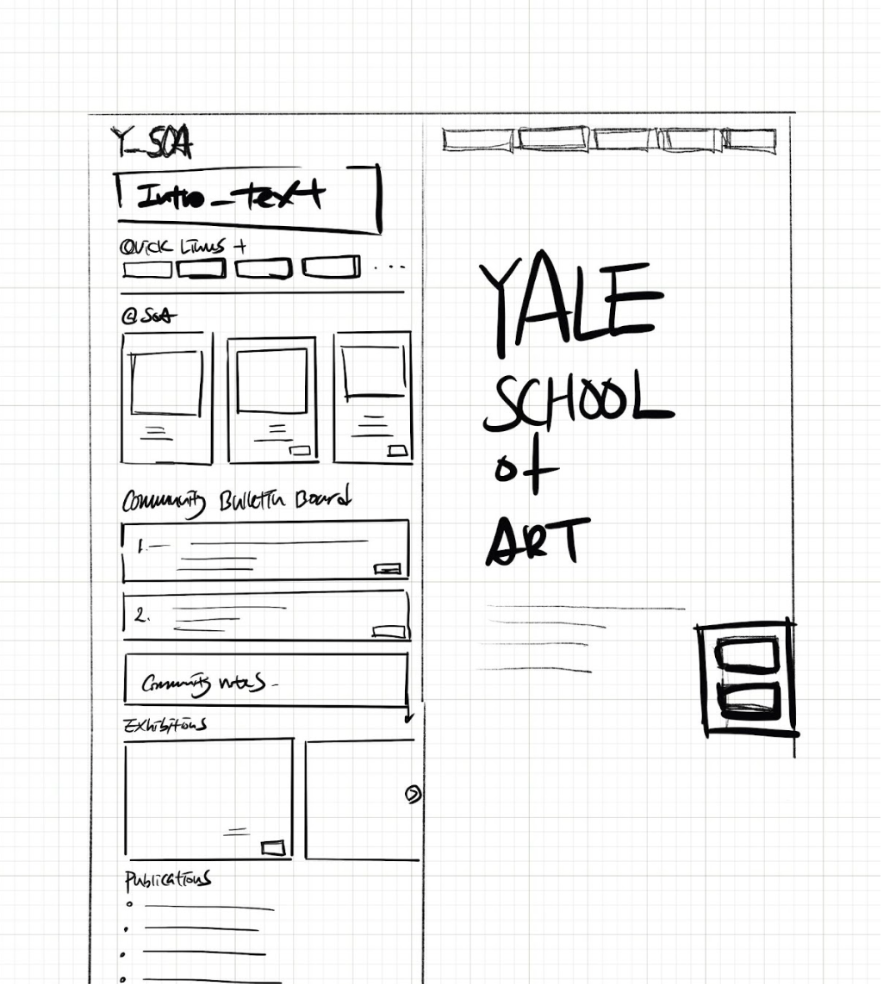 Y_SOA
Intro_text
Quick Links +
@SoA
Community Bulletin Board
1.
2.
Community notes
Exhibitions
Publications
YALE
SCHOOL
of
ART